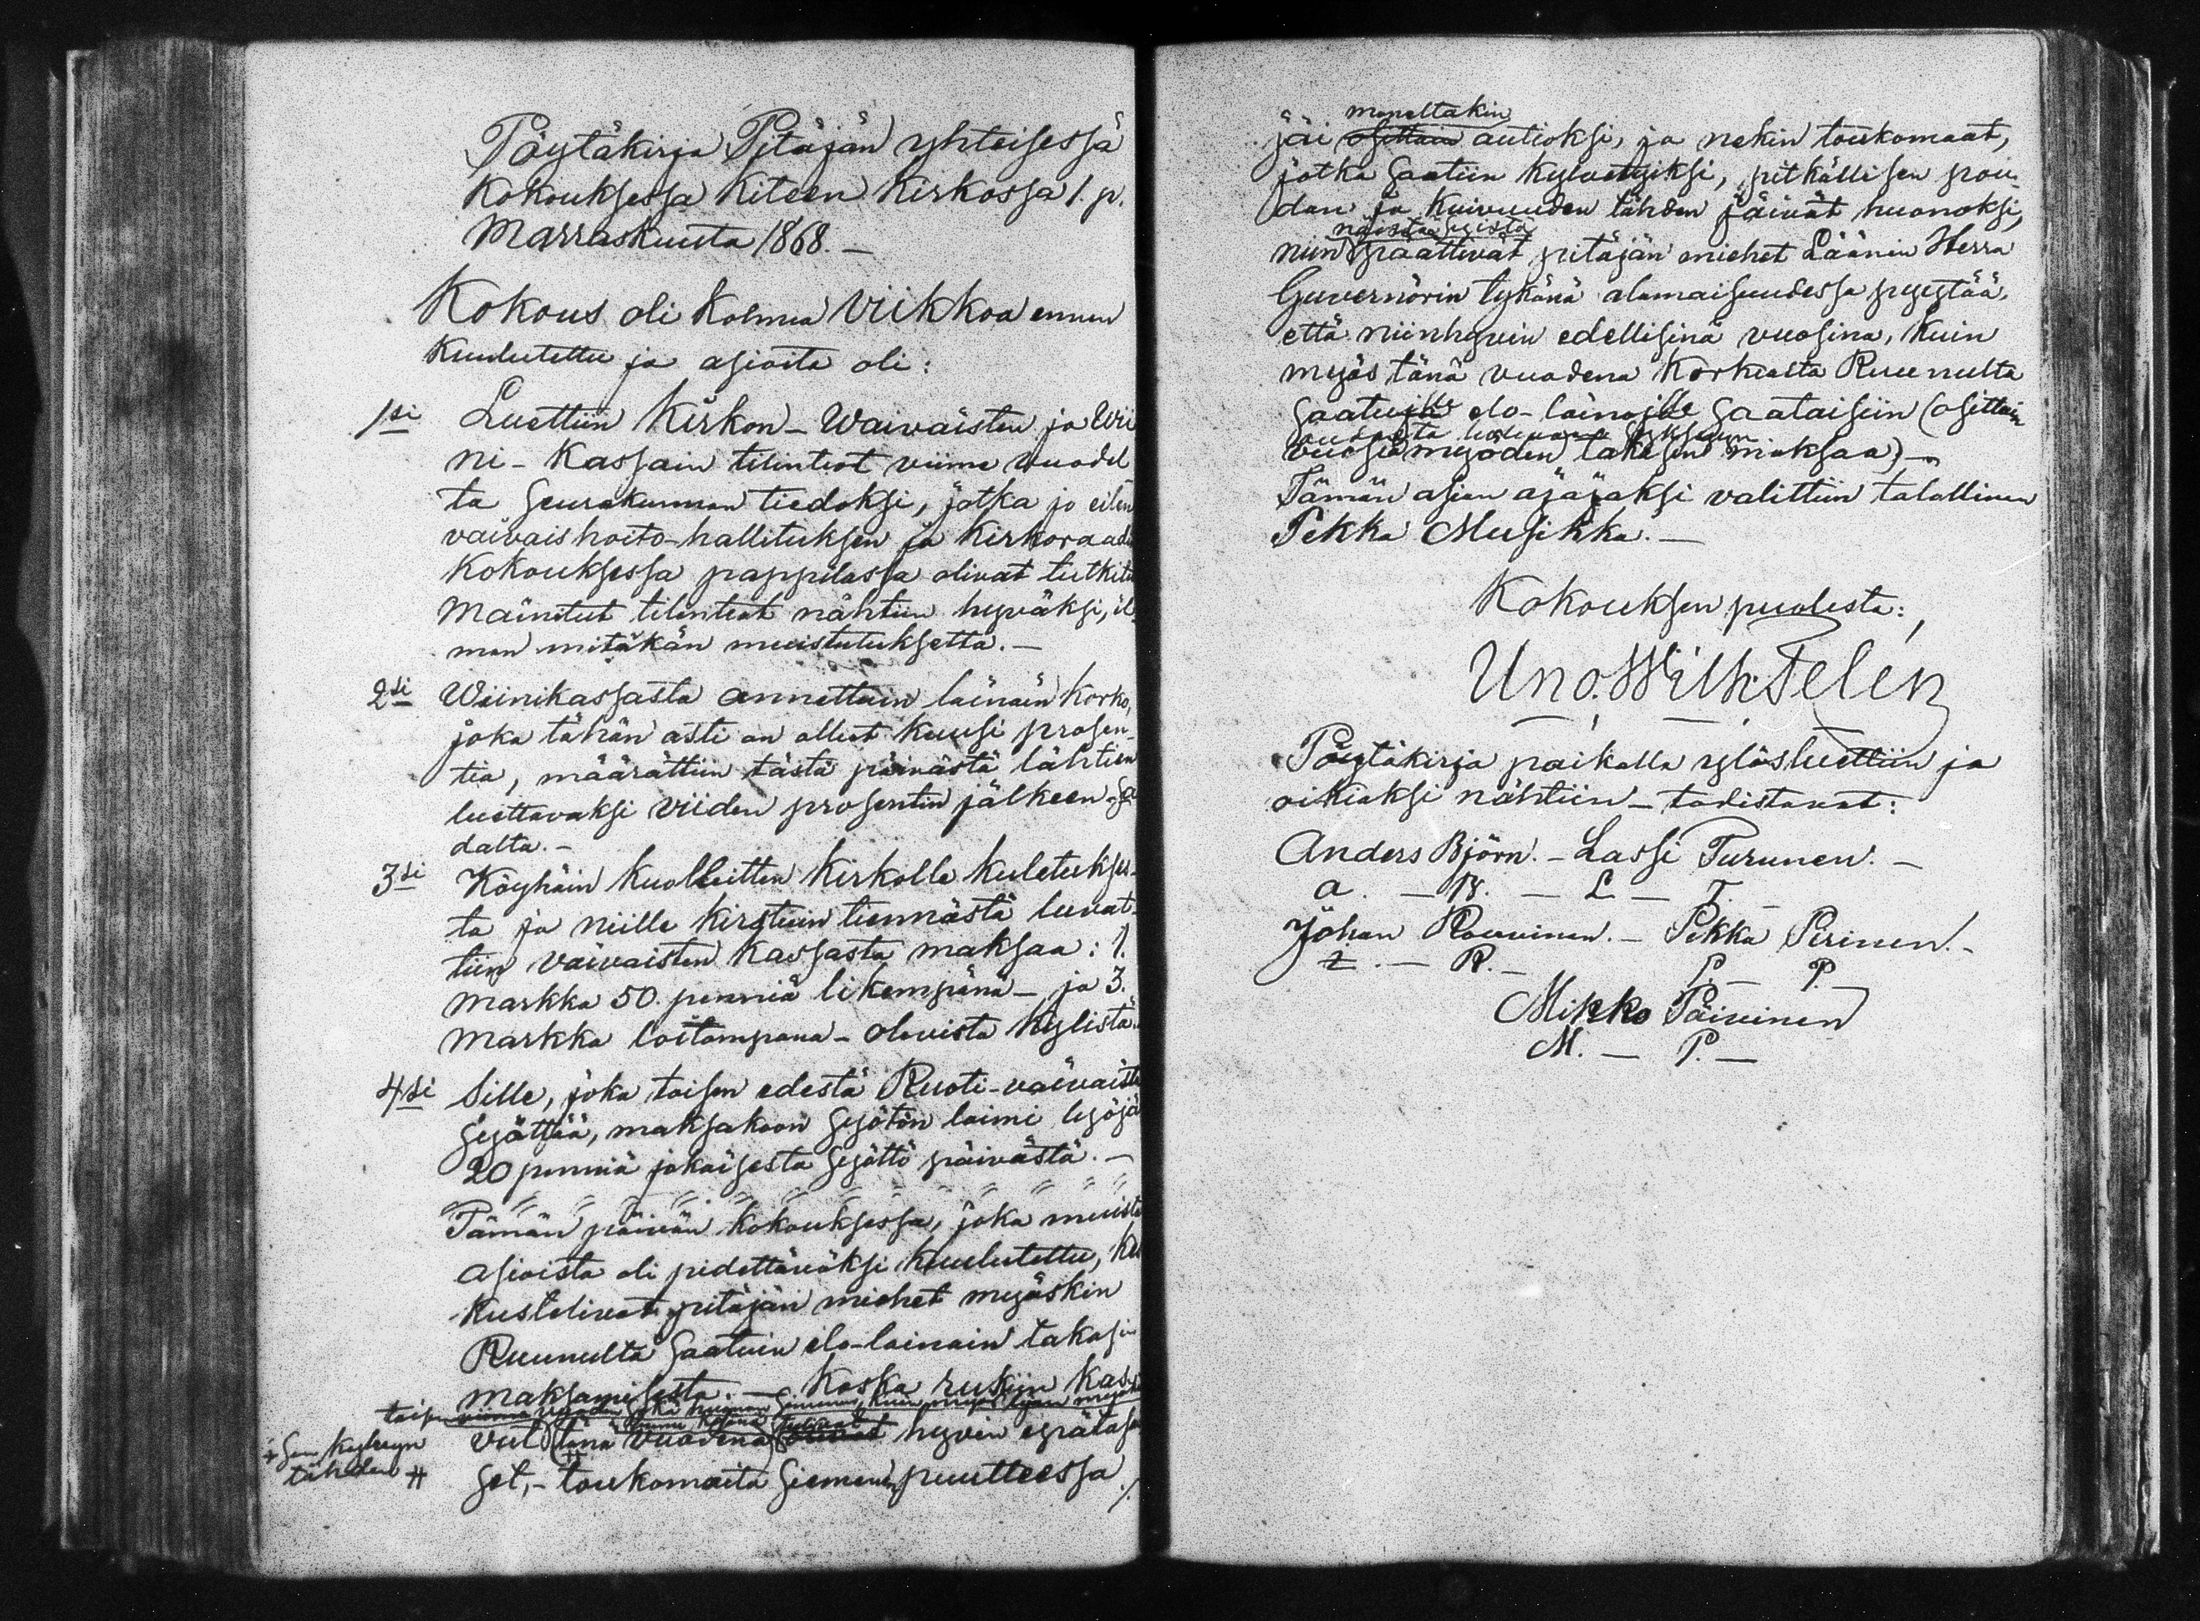 Pöytäkirja Pitäjän yhteisessä
Kokouksessa Kiteen Kirkossa 1. p.
Marraskuuta 1868. —
Kokous oli kolmia viikkoa ennen
Kuulutettu ja asioita oli:
1si Luettiin Kirkon- Waivaisten ja Wii
ni- Kassain tilinteot viime vuodel
ta seurakunnan tiedoksi, jotka jo eilen
vaivaishoito-hallituksen ja Kirkoraadi
Kokouksessa pappilassa olivat tutkitut
Mainitut tilinteot nähtiin hyväksi, il
man mitäkän muistutuksetta. —
2si Wiinikassasta annettuin lainain korko,
joka tähän asti on ollut kuusi prosen-
tia, määrättiin tästä päivästä lähtien
luettavaksi viiden prosentin jälkeen sa
dalta. —
3si Köyhäin kuolleitten Kirkolle kuletukses-
ta ja niille kirstuin tiennästä luvat-
tiin vaivaisten Kassasta maksaa: 1.
markka 50. penniä likempänä — ja 3.
markka loitompana — olevista kylistä.
4si Sille, joka toisen edestä Ruoti-vaivaista
syöttää, maksakoon syötön laimi lyöjä
20 penniä jokaisesta syöttö päivästä. —
Tämän päivän kokouksessa, joka muista
asioista oli pidettäväksi kuulutettu, kes
kustelivat pitäjän miehet myöskin
Ruunulta saatuin elo-lainain takasin
maksamisesta. — Koska rukiin kas-
vut tänä vuodena tulivat hyvin epätasa
+ sen kylvyn
tähden #
set, — toukomaita siemenen puutteessa ./.
moneltakin
jäi osittain autioksi, ja nekin toukomaat,
jotka saatiin kylvetyiksi, pitkällisen pou-
dan ja kuivuuden tähden jäivät huonoksi,
näistä syistä
niin päättivät pitäjän miehet Läänin Herra
Guvernörin tykönä alamaisuudessa pyytää,
että niinhyvin edellisinä vuosina, kuin
myös tänä vuodena Korkialta Ruunulta
saatujille elo-lainoille saataisiin (osittain
vuosien myöden takasin maksaa) —
Tämän asian ajajaksi valittiin talollinen
Pekka Musikka. —
Kokouksen puolesta:
Uno. Wilh. Telén
Pöytäkirja paikalla ylösluettiin ja
oikiaksi nähtiin — todistavat:
Anders Björn. — Lassi Turunen. —
A. — B. — L — T. —
Johan Rouvinen. — Pekka Pirinen. —
I. — R. — P. — P. —
Mikko Päivinen
M. — P. —